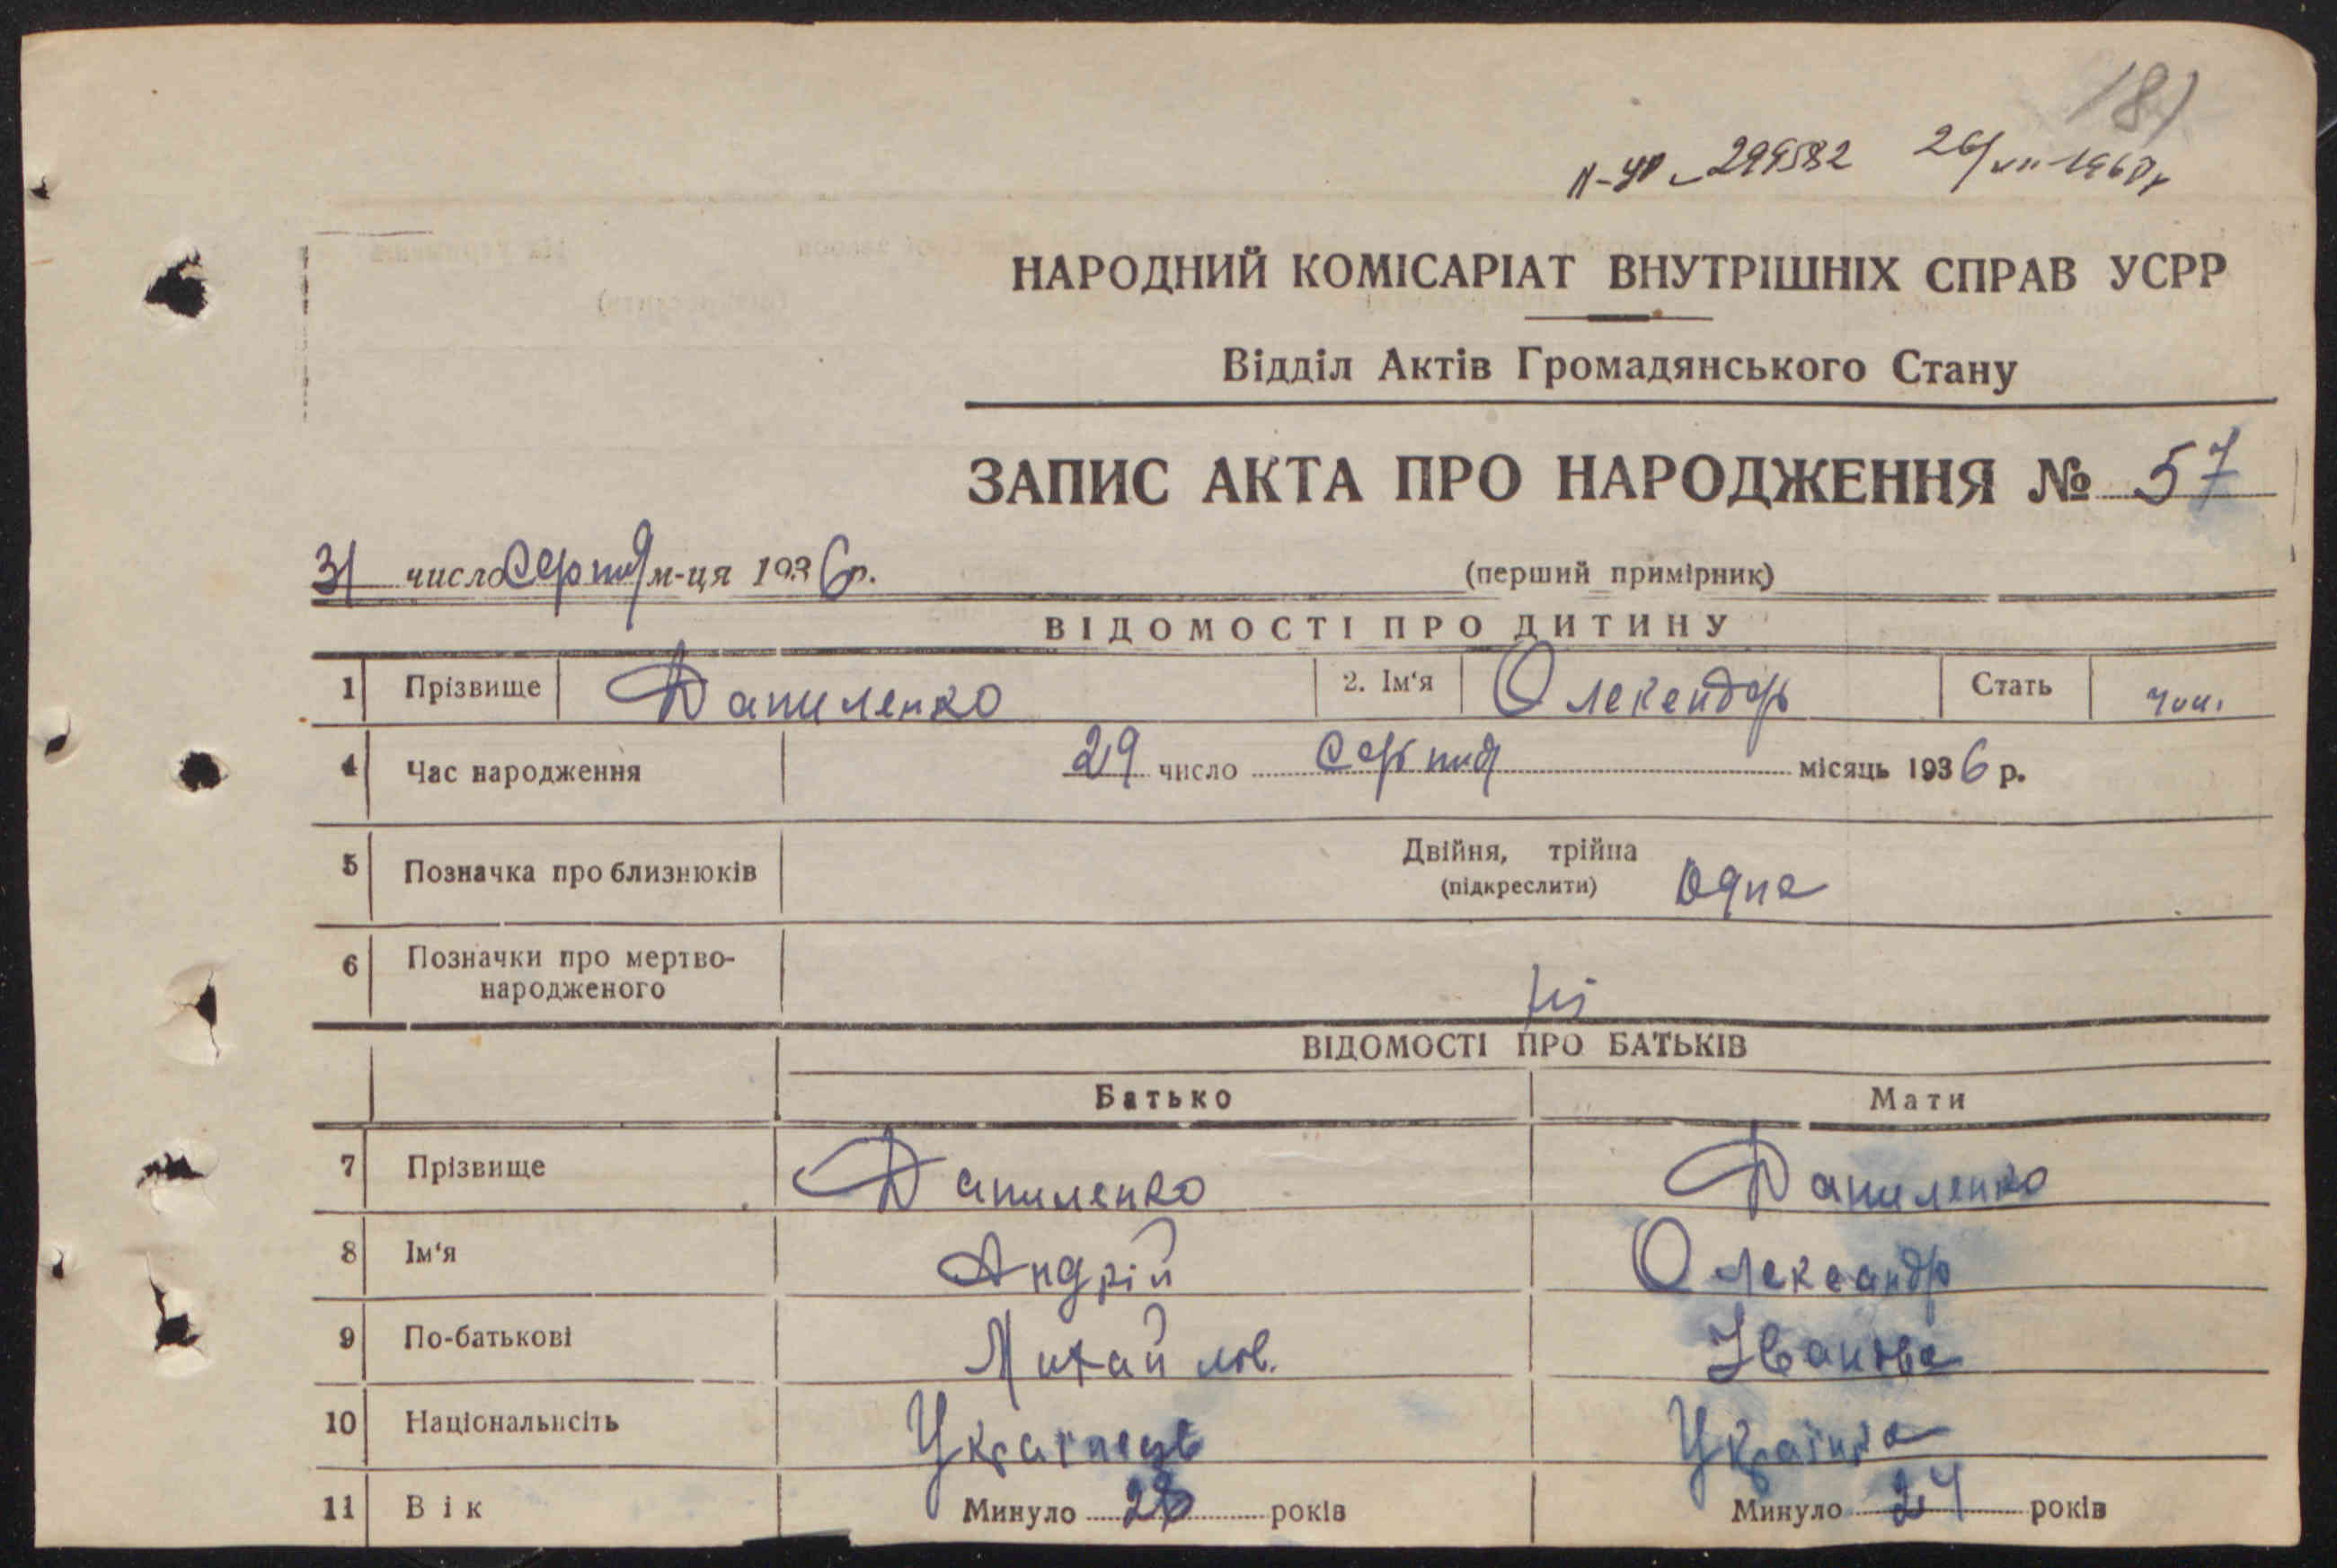 181
299582 26/VII-1967р
НАРОДНИЙ КОМІСАРІАТ ВНУТРІШНІХ СПРАВ УСРР
Відділ Актів Громадянського Стану
ЗАПИС АКТА ПРО НАРОДЖЕННЯ № 57
31 число Серпня м-ця 1936 р.
(перший примірник)
ВІДОМОСТІ ПРО ДИТИНУ
1 Прізвище Даниленко 2. Ім'я Олександр Стать чол.
4 Час народження 29 число Серпня місяць 1936 р.
5 Позначка про близнюків Двійня, трійна
(підкреслити) Одна
6 Позначки про мертво-
народженого Ні
ВІДОМОСТІ ПРО БАТЬКІВ
Батько Мати
7 Прізвище Даниленко Даниленко
8 Ім'я Андрій Олександр
9 По-батькові Михайлов. Іванова
10 Національність Українець Українка
11 Вік Минуло 28 років Минуло 24 років